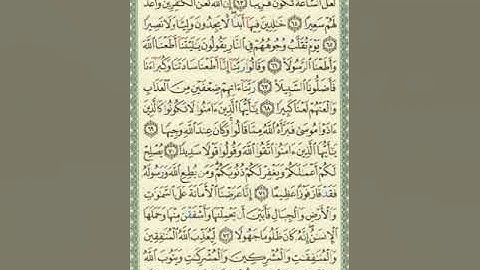 لَعَلَّ ٱلسَّاعَةَ تَكُونُ قَرِيبًا ٦٣ إِنَّ ٱللَّهَ لَعَنَ ٱلْكَـٰفِرِينَ وَأَعَدَّ
لَهُمْ سَعِيرًا ٦٤ خَـٰلِدِينَ فِيهَآ أَبَدًا ۖ لَّا يَجِدُونَ وَلِيًّا وَلَا نَصِيرًا
٦٥ يَوْمَ تُقَلَّبُ وُجُوهُهُمْ فِى ٱلنَّارِ يَقُولُونَ يَـٰلَيْتَنَآ أَطَعْنَا ٱللَّهَ
وَأَطَعْنَا ٱلرَّسُولَا۠ ٦٦ وَقَالُوا۟ رَبَّنَآ إِنَّآ أَطَعْنَا سَادَتَنَا وَكُبَرَآءَنَا
فَأَضَلُّونَا ٱلسَّبِيلَا۠ ٦٧ رَبَّنَآ ءَاتِهِمْ ضِعْفَيْنِ مِنَ ٱلْعَذَابِ
وَٱلْعَنْهُمْ لَعْنًا كَبِيرًا ٦٨ يَـٰٓأَيُّهَا ٱلَّذِينَ ءَامَنُوا۟ لَا تَكُونُوا۟ كَٱلَّذِينَ
ءَاذَوْا۟ مُوسَىٰ فَبَرَّأَهُ ٱللَّهُ مِمَّا قَالُوا۟ ۚ وَكَانَ عِندَ ٱللَّهِ وَجِيهًا ٦٩
يَـٰٓأَيُّهَا ٱلَّذِينَ ءَامَنُوا۟ ٱتَّقُوا۟ ٱللَّهَ وَقُولُوا۟ قَوْلًا سَدِيدًا ٧٠ يُصْلِحْ
لَكُمْ أَعْمَـٰلَكُمْ وَيَغْفِرْ لَكُمْ ذُنُوبَكُمْ ۗ وَمَن يُطِعِ ٱللَّهَ وَرَسُولَهُۥ
فَقَدْ فَازَ فَوْزًا عَظِيمًا ٧١ إِنَّا عَرَضْنَا ٱلْأَمَانَةَ عَلَى ٱلسَّمَـٰوَٰتِ
وَٱلْأَرْضِ وَٱلْجِبَالِ فَأَبَيْنَ أَن يَحْمِلْنَهَا وَأَشْفَقْنَ مِنْهَا وَحَمَلَهَا
ٱلْإِنسَـٰنُ ۖ إِنَّهُۥ كَانَ ظَلُومًا جَهُولًا ٧٢ لِّيُعَذِّبَ ٱللَّهُ ٱلْمُنَـٰفِقِينَ
وَٱلْمُنَـٰفِقَـٰتِ وَٱلْمُشْرِكِينَ وَٱلْمُشْرِكَـٰتِ وَيَتُوبَ ٱللَّهُ